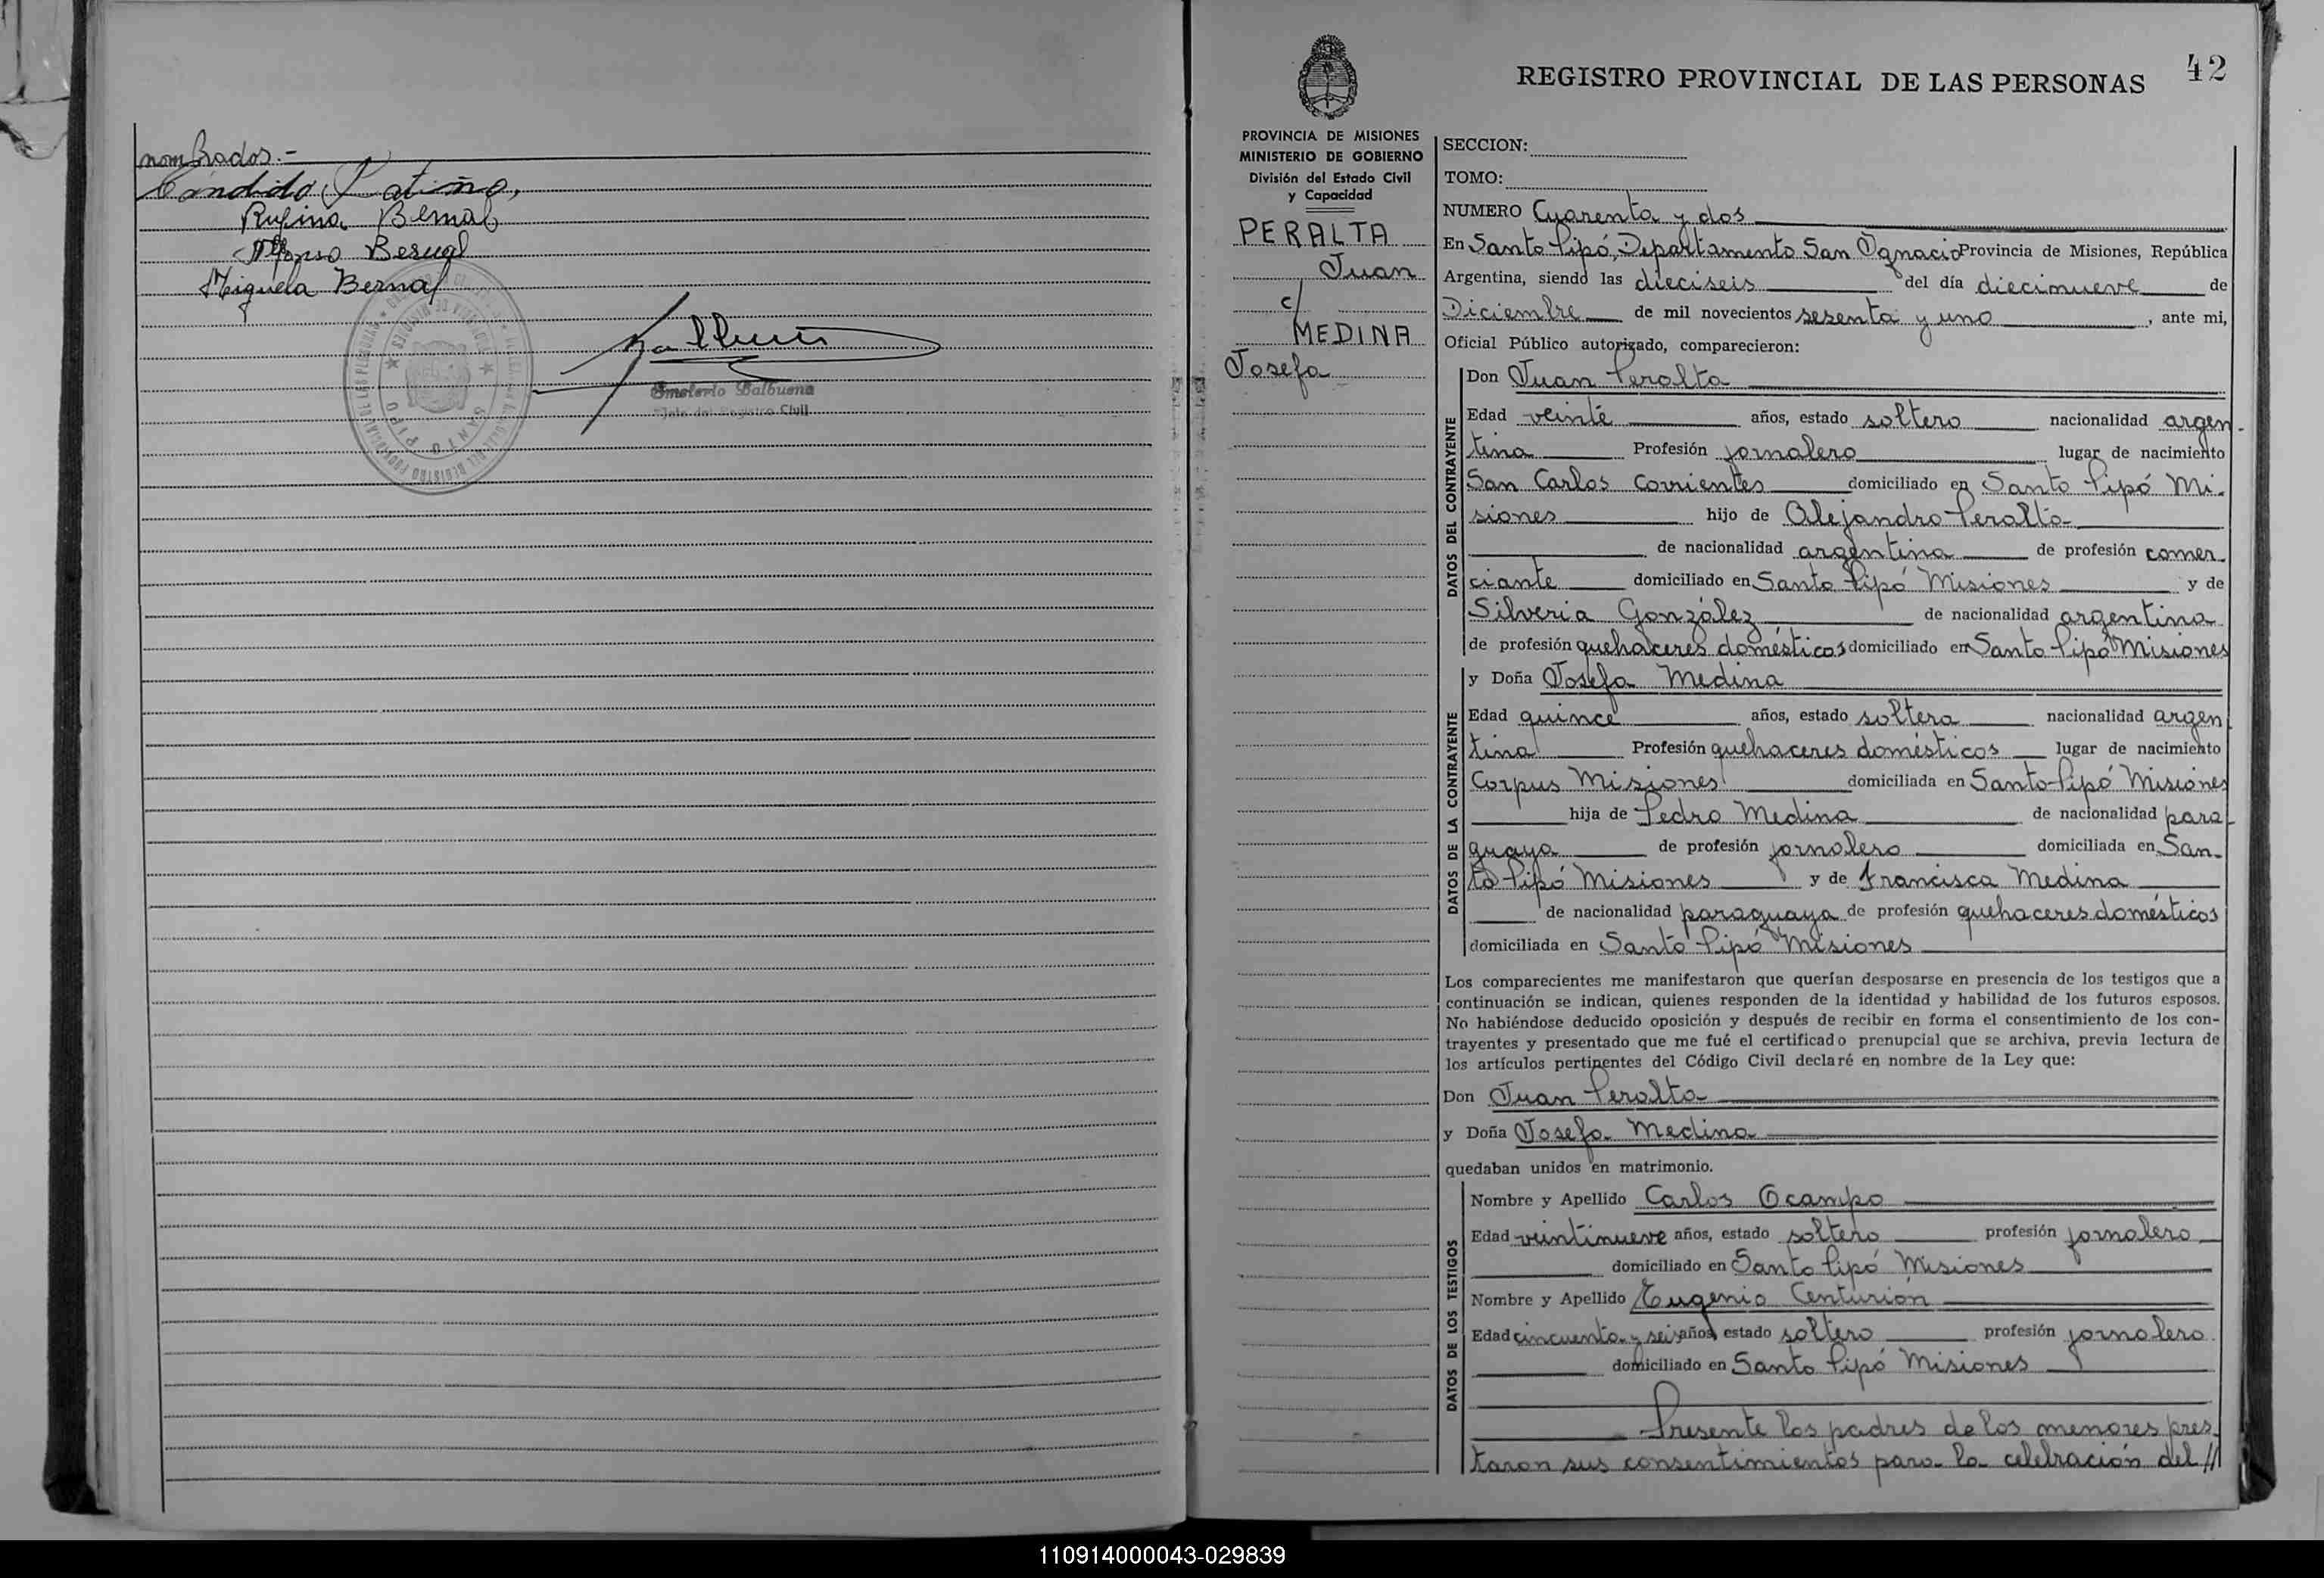 nombrados.-
Cándido Patiño,
Rufina Bernal
Alfonso Bernal
Miguela Bernal
SANTO PIPO
Emeterio Balbuena
Jefe del Registro Civil
42
REGISTRO PROVINCIAL DE LAS PERSONAS
PROVINCIA DE MISIONES
MINISTERIO DE GOBIERNO
División del Estado Civil
y Capacidad
PERALTA
Juan
c/
MEDINA
Josefa
SECCION:
TOMO:
NUMERO Cuarenta y dos
En Santo Pipó, Departamento San Ignacio Provincia de Misiones, República
Argentina, siendo las dieciseis del día diecinueve de
Diciembre de mil novecientos sesenta y uno, ante mi,
Oficial Público autorizado, comparecieron:
DATOS DEL CONTRAYENTE
Don Juan Peralta
Edad veinte años, estado soltero nacionalidad argen-
tina Profesión jornalero lugar de nacimiento
San Carlos Corrientes domiciliado en Santo Pipó Mi-
siones hijo de Alejandro Peralta
de nacionalidad argentina de profesión comer-
ciante domiciliado en Santo Pipó Misiones y de
Silveria González de nacionalidad argentina
de profesión quehaceres domésticos domiciliado en Santo Pipó Misiones
DATOS DE LA CONTRAYENTE
y Doña Josefa Medina
Edad quince años, estado soltera nacionalidad argen
tina Profesión quehaceres domésticos lugar de nacimiento
Corpus Misiones domiciliada en Santo Pipó Misiones
hija de Pedro Medina de nacionalidad para-
guaya de profesión jornalero domiciliada en San-
to Pipó Misiones y de Francisca Medina
de nacionalidad paraguaya de profesión quehaceres domésticos
domiciliada en Santo Pipó Misiones
Los comparecientes me manifestaron que querían desposarse en presencia de los testigos que a
continuación se indican, quienes responden de la identidad y habilidad de los futuros esposos.
No habiéndose deducido oposición y después de recibir en forma el consentimiento de los con-
trayentes y presentado que me fué el certificado prenupcial que se archiva, previa lectura de
los artículos pertinentes del Código Civil declaré en nombre de la Ley que:
Don Juan Peralta
y Doña Josefa Medina
quedaban unidos en matrimonio.
DATOS DE LOS TESTIGOS
Nombre y Apellido Carlos Ocampo
Edad veintinueve años, estado soltero profesión jornalero
domiciliado en Santo Pipó Misiones
Nombre y Apellido Eugenio Centurión
Edad cincuenta y seis años, estado soltero profesión jornalero
domiciliado en Santo Pipó Misiones
Presente los padres de los menores pres-
taron sus consentimientos para la celebración del //
110914000043-029839